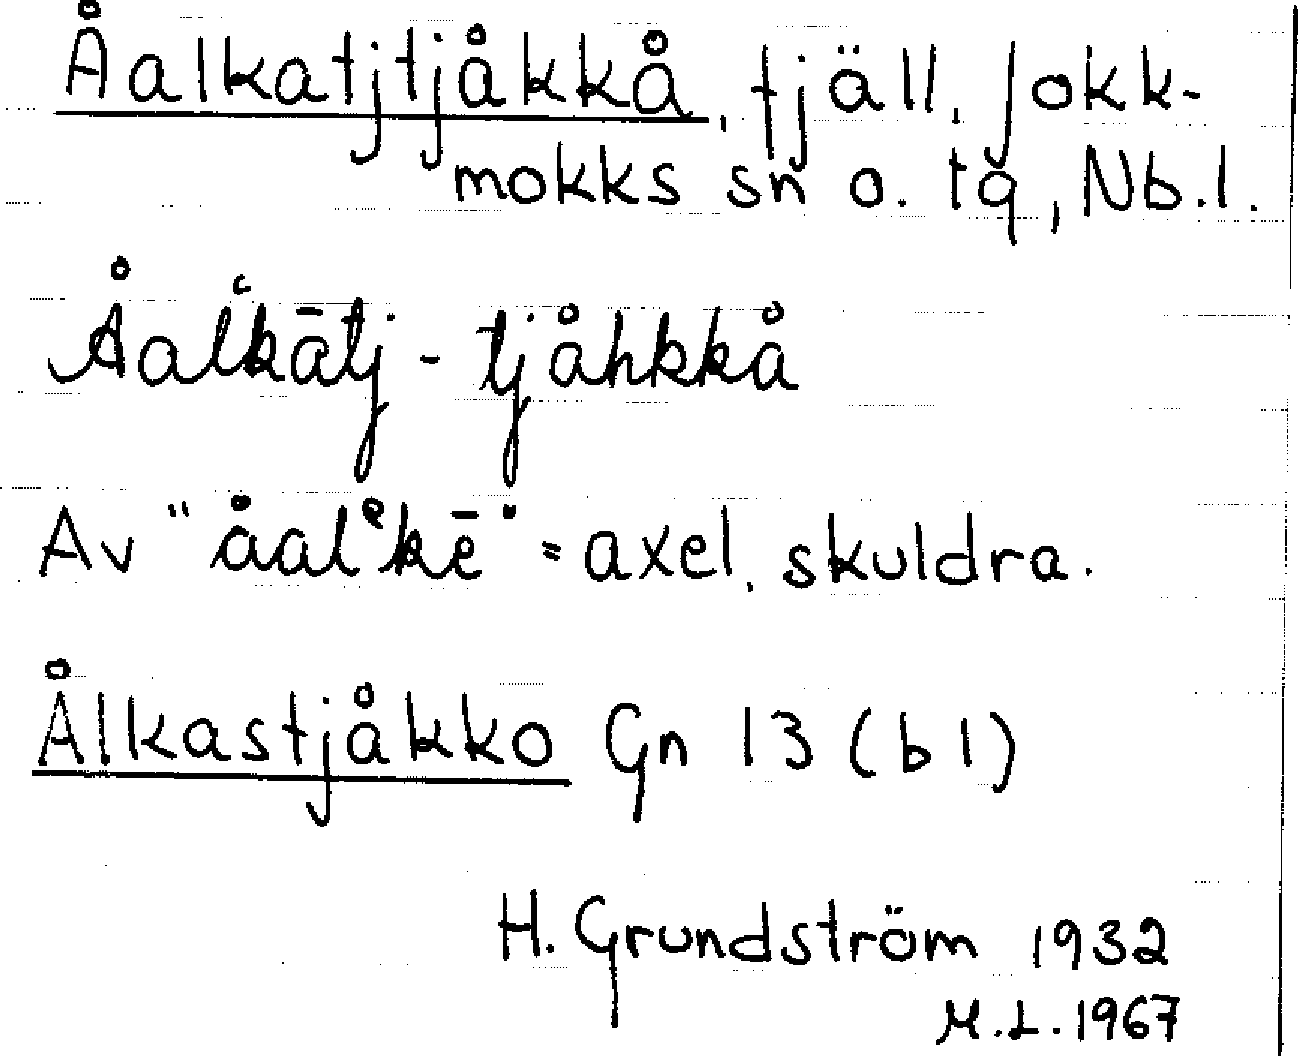 Åalkatjtjåkkå, fjäll, Jokk-
mokks sn o. tg, Nb.l.
Åalˊkātj - tjåhkkå
Av "åalᵉkē" = axel, skuldra.
Ålkastjåkko Gn 13 (b1)
H. Grundström 1932
M.L. 1967